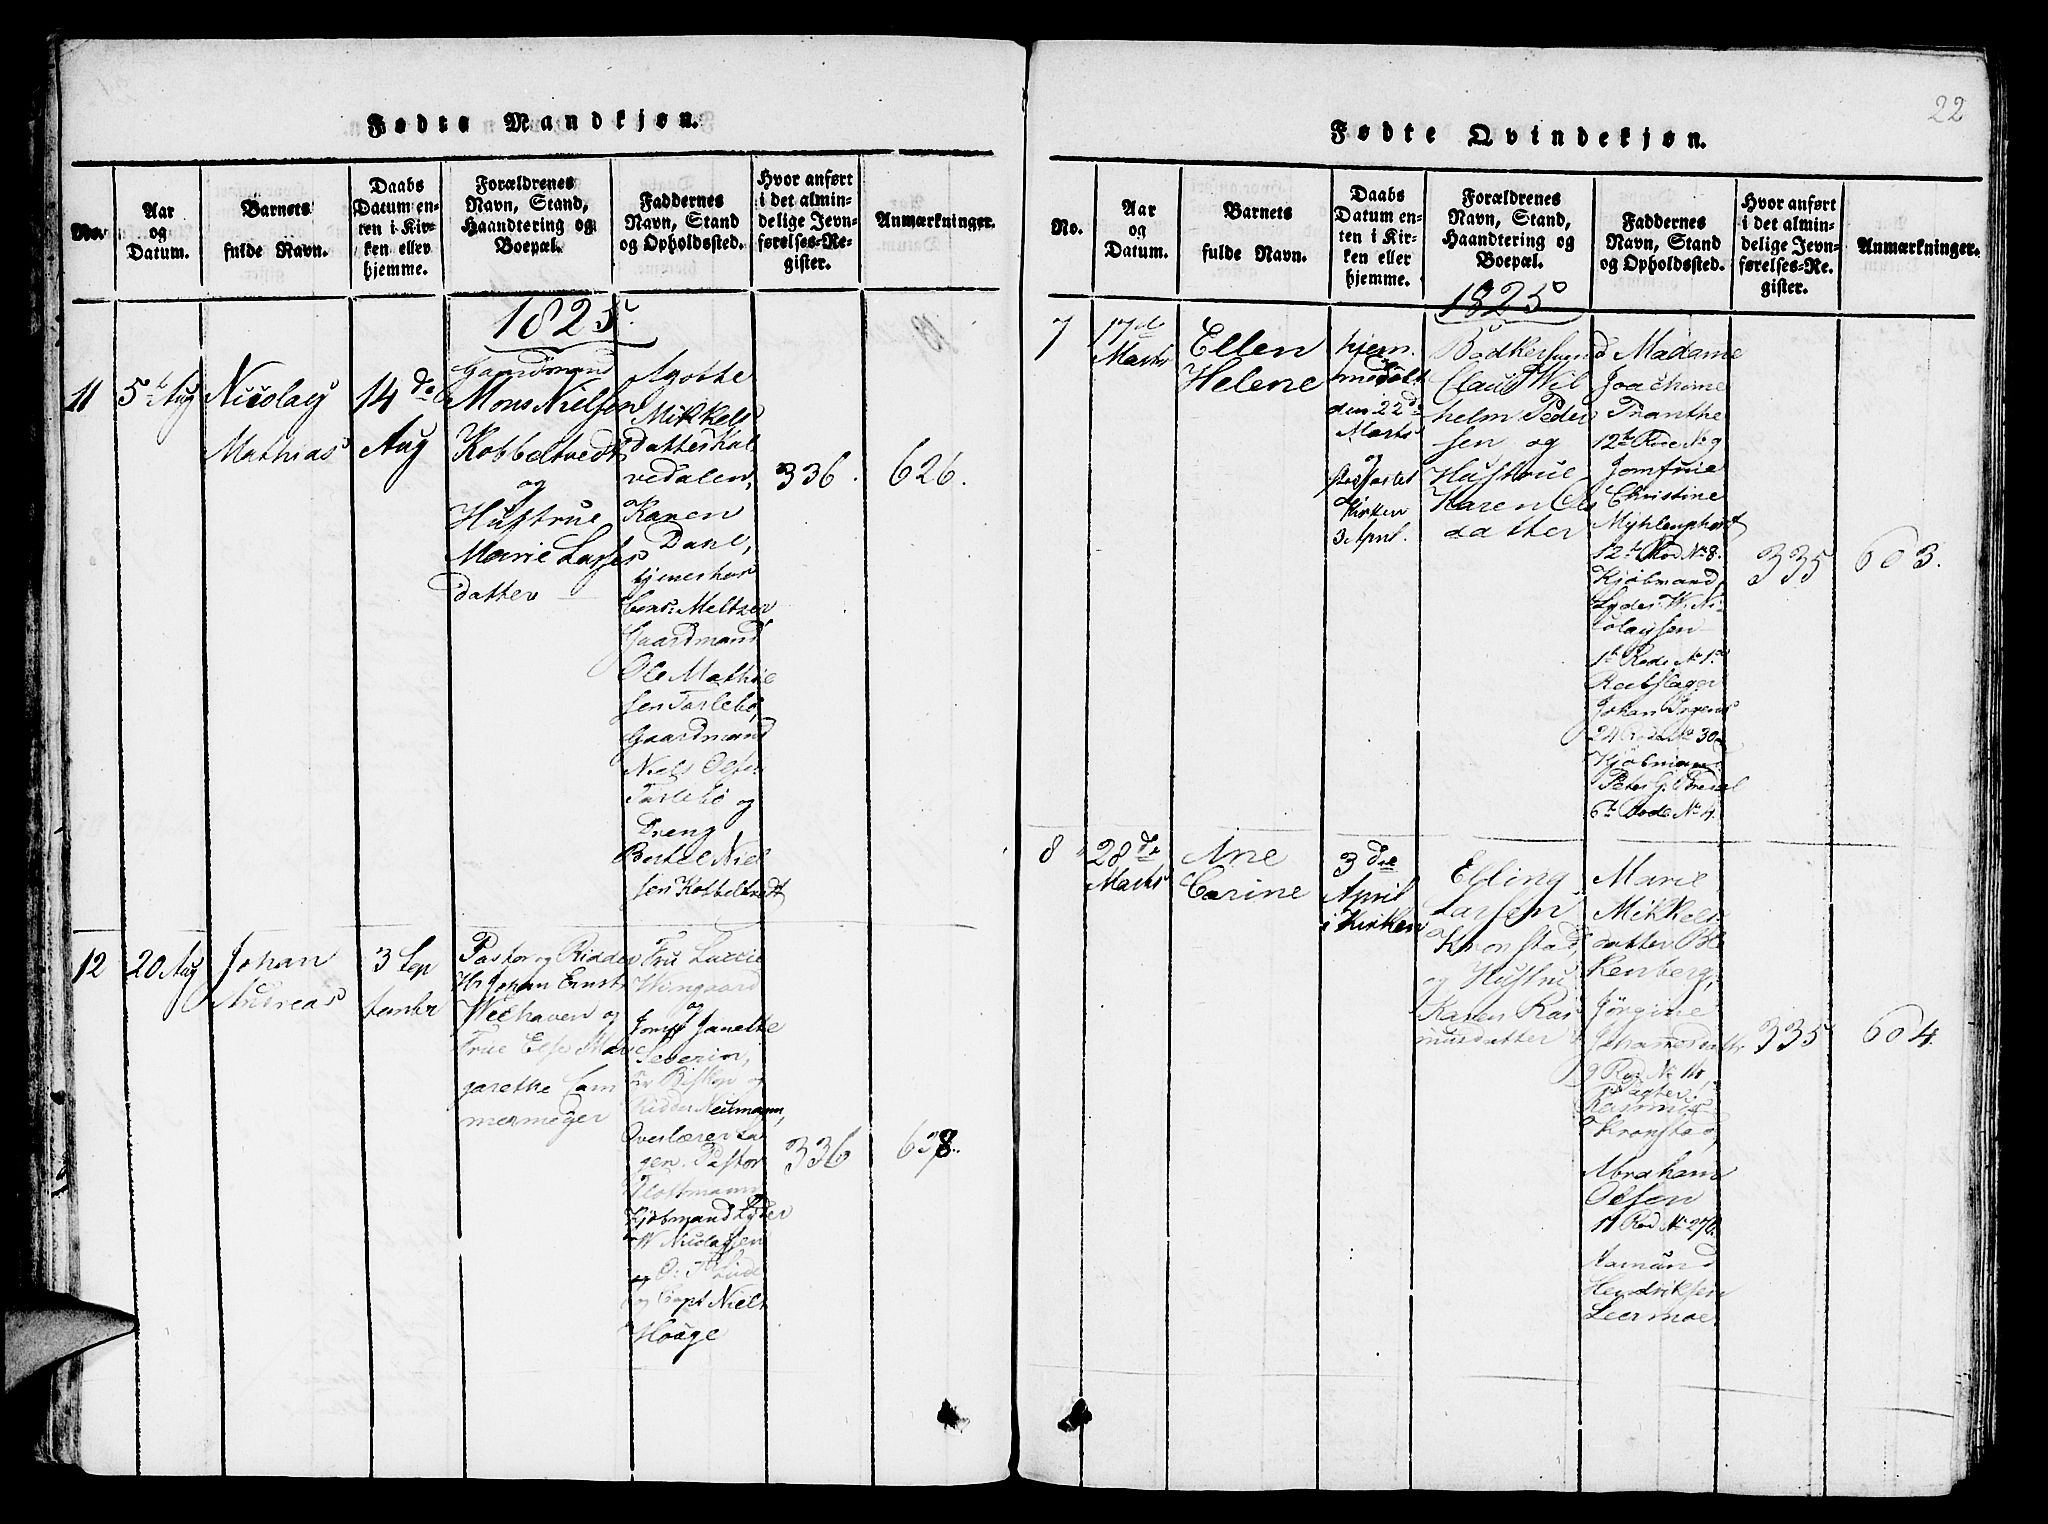 22
Fødte Mandkjøn.
No.
Aar
og
Datum.
Barnets
fulde Navn.
Daabs
Datum en-
ten i Kir-
ken eller
hjemme.
Forældrenes
Navn, Stand,
Haandtering og
Boepæl.
Faddernes
Navn, Stand
og Opholdssted.
Hvor anført
i det almin-
delige Jevn-
førelses-Re-
gister.
Anmærkninger.
1825.
11
5te Aug
Nicolay
Mathias
14de
Aug
Gaardmand
Mons Nielsen
Kobbeltvedt
og
Hustrue
Marie Lasses
datter
Agothe
Mikkels
datter
vedalen,
Karen
Dahl,
tjenes hos
Cons: Meltzer
Gaardmand
Ole Mathie
sen Tarlebø,
Gaardmand
Niels Olsen
Tarlebø og
Dreng
Bertel Niel
sen Kobbeltvedt
336.
626.
12
20 Aug
Johan
Andreas
3 Sep
tember
Pastor og Ridder
Hr Johan Ernst
Welhaven og
Frue Else Mar
garethe Cam
mermeyer
Fru Luccie
Wingaard
og
Jomf Janette
Severin,
Hr Biskop og
Ridder Neumann,
Overlærer Sa
gen. Pastor
Kjøbmand Lyder
W Nicolaysen
og
og Capt Niels
336
Fødte Qvindekjøn.
No.
Aar
og
Datum.
Barnets
fulde Navn.
Daabs
Datum en-
ten i Kir-
ken eller
hjemme.
Forældrenes
Navn, Stand,
Haandtering og
Boepæl.
Faddernes
Navn, Stand
og Opholdssted.
Hvor anført
i det almin-
delige Jevn-
førelses-Re-
gister.
Anmærkninger.
1825
7
17de
Marts
Ellen
Helene
hjem
medøbt
den 22de
Marts
og
Kirken
3 April.
Bødkersvend
Claus Wil
helm Peder
sen og
Hustrue
Karen Ols
datter
Madame
Joachime
12te Rode No 9
Jomfrue
Christine
Myhlenphort
12te Rod No 8.
Kjøbmand
Lyder W. Ni
colaysen
1te Rode No 1.
Reebslager
Johan
24 Rode No 30
Kjøbmand
Peter G.
6te Rode No 9.
335
603.
8
28de
Marts
Ane
Carine
3die
April
i Kirken
Elling
Larsen
Kronstad,
og Hustru
Karen Ras
musdatter
Marie
Mikkels
datter Ble
kenberg,
Jørgine
Johannesdatter
9 Rod No
Rasmus
Kronstad,
Abraham
Olsen
17 Rod No 27
Aamund
Hendriksen
Leermoe
335
604.